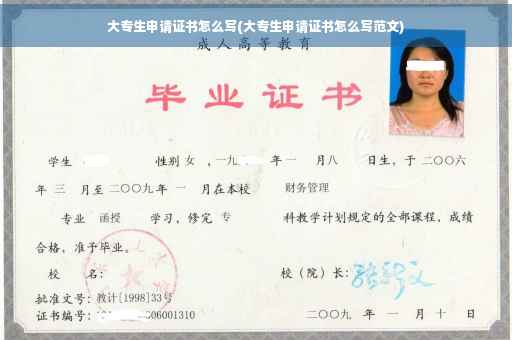 大专生申请证书怎么写(大专生申请证书怎么写范文)
成人高等教育
毕业证书
学生 性别 女 ，一九 年一 月八 日生，于二〇〇六
年 三 月至二〇〇九年 一 月在本校 财务管理
专业 函授 学习，修完 专 科教学计划规定的全部课程，成绩
合格，准予毕业。
校 名： 校（院）长：
批准文号：教计[1998]33号
证书编号： 06001310 二〇〇九 年 一 月 十 日